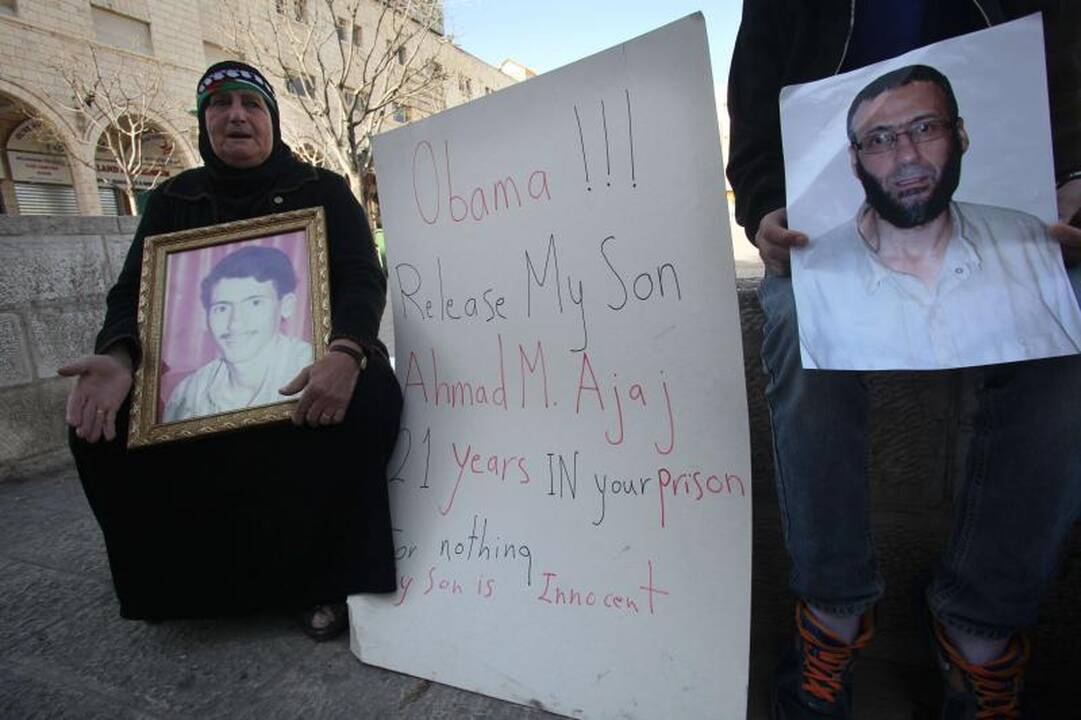 Obama !!!
Release My Son
Ahmad M. Ajaj
21 years IN your prison
for nothing
My Son is Innocent